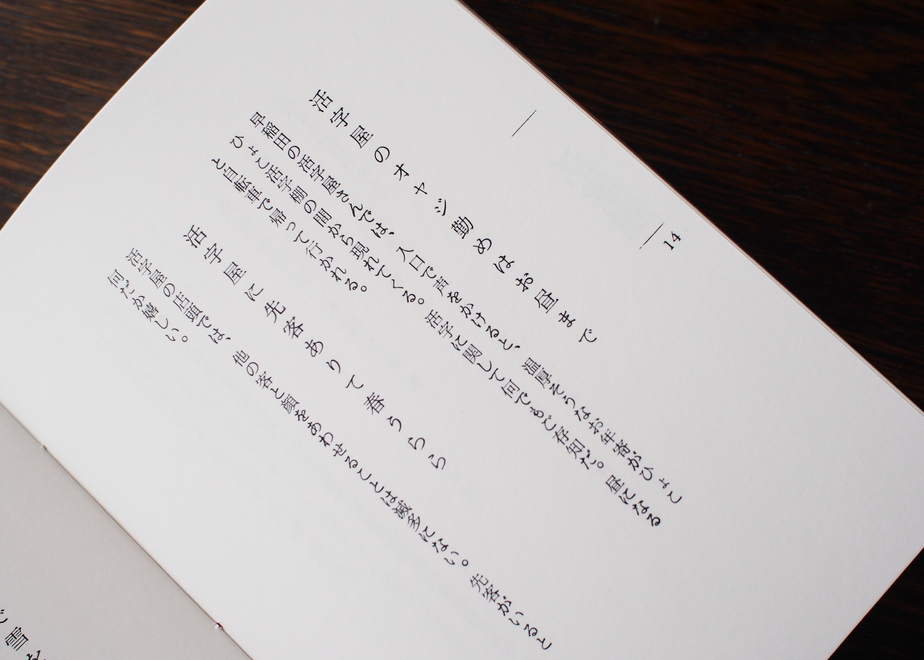 14
活字屋のオヤジ勤めはお昼まで
早稲田の活字屋さんでは、入口で声をかけると、温厚そうなお年寄がひょこ
ひょこ活字棚の間から現れてくる。活字に関して何でもご存知だ。昼になる
と自転車で帰って行かれる。
活字屋に先客ありて春うらら
活字屋の店頭では、他の客と顔をあわせることは滅多にない。先客がいると
何だか嬉しい。
雪